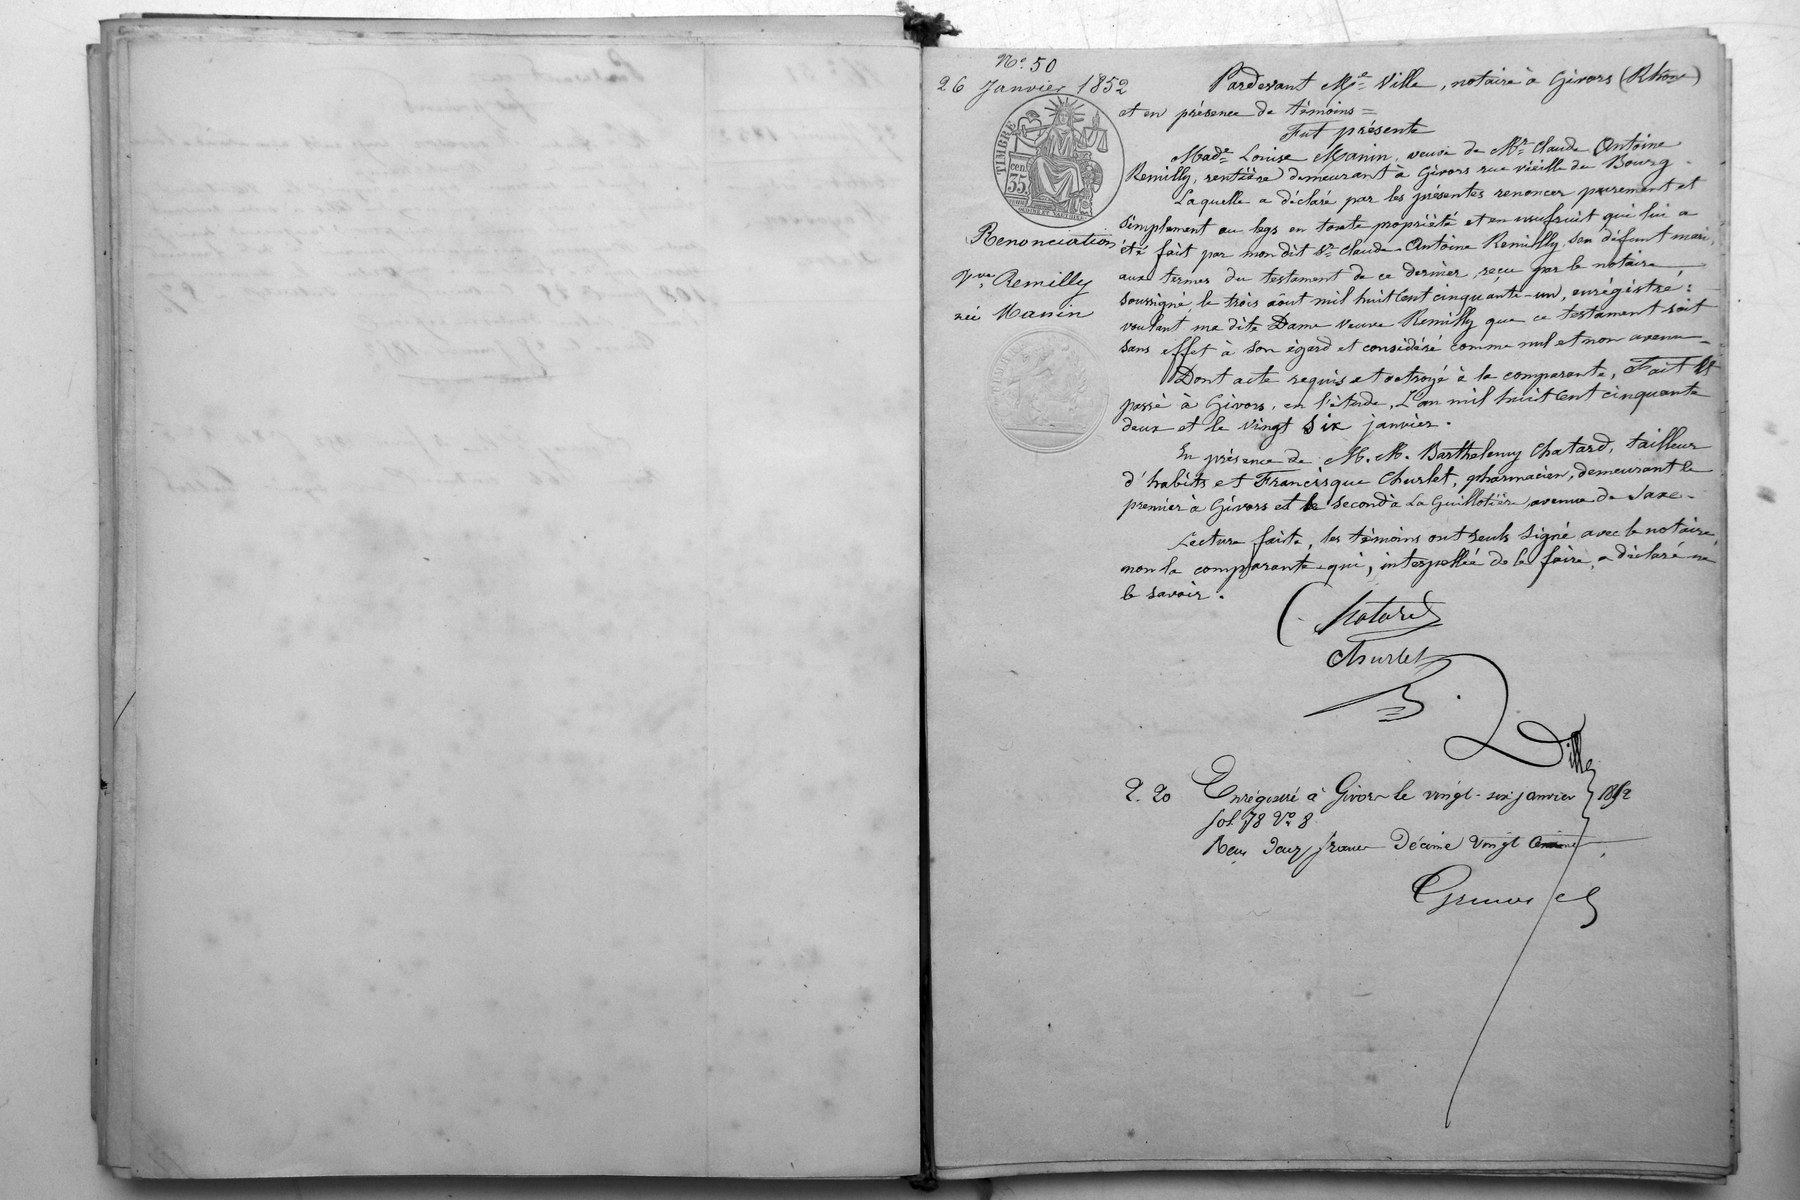 N° 50
26 Janvier 1852
TIMBRE
35 cen
Renonciation
Vve Remilly
née Manin
Pardevant Me Ville, notaire à Givors (Rhône)
et en présence de témoins =
Fut présente
Made Louise Manin, veuve de Mr Claude Antoine
Remilly, rentière demeurant à Givors rue vieille du Bourg.
Laquelle a déclaré par les présentes renoncer purement et
simplement au legs en toute propriété et en usufruit qui lui a
été fait par mon dit Sr Claude Antoine Remilly, son défunt mari,
aux termes du testament de ce dernier, reçu par le notaire
soussigné, le trois août mil huit cent cinquante-un, enrégistré;
voulant ma dite Dame veuve Remilly que ce testament soit
sans effet à son égard et considéré comme nul et non avenu
Dont acte requis et octroyé à la comparante, Fait et
passé à Givors, en l'étude, L'an mil huit cent cinquante
deux et le vingt six janvier.
En présence de M.M. Barthelemy Chatard, tailleur
d'habits et Francisque Churlet, pharmacien, demeurant le
premier à Givors et le second à La Guillotière, avenue de Saxe.
Lecture faite, les témoins ont seuls signé avec le notaire,
non la comparante qui, interpellée de le faire, a déclaré ne
le savoir.
Churlet
Ville
2.20 Enrégistré à Givors le vingt-six janvier 1852
fol. 78 Vo 8
Reçu deux francs Décime vingt centimes